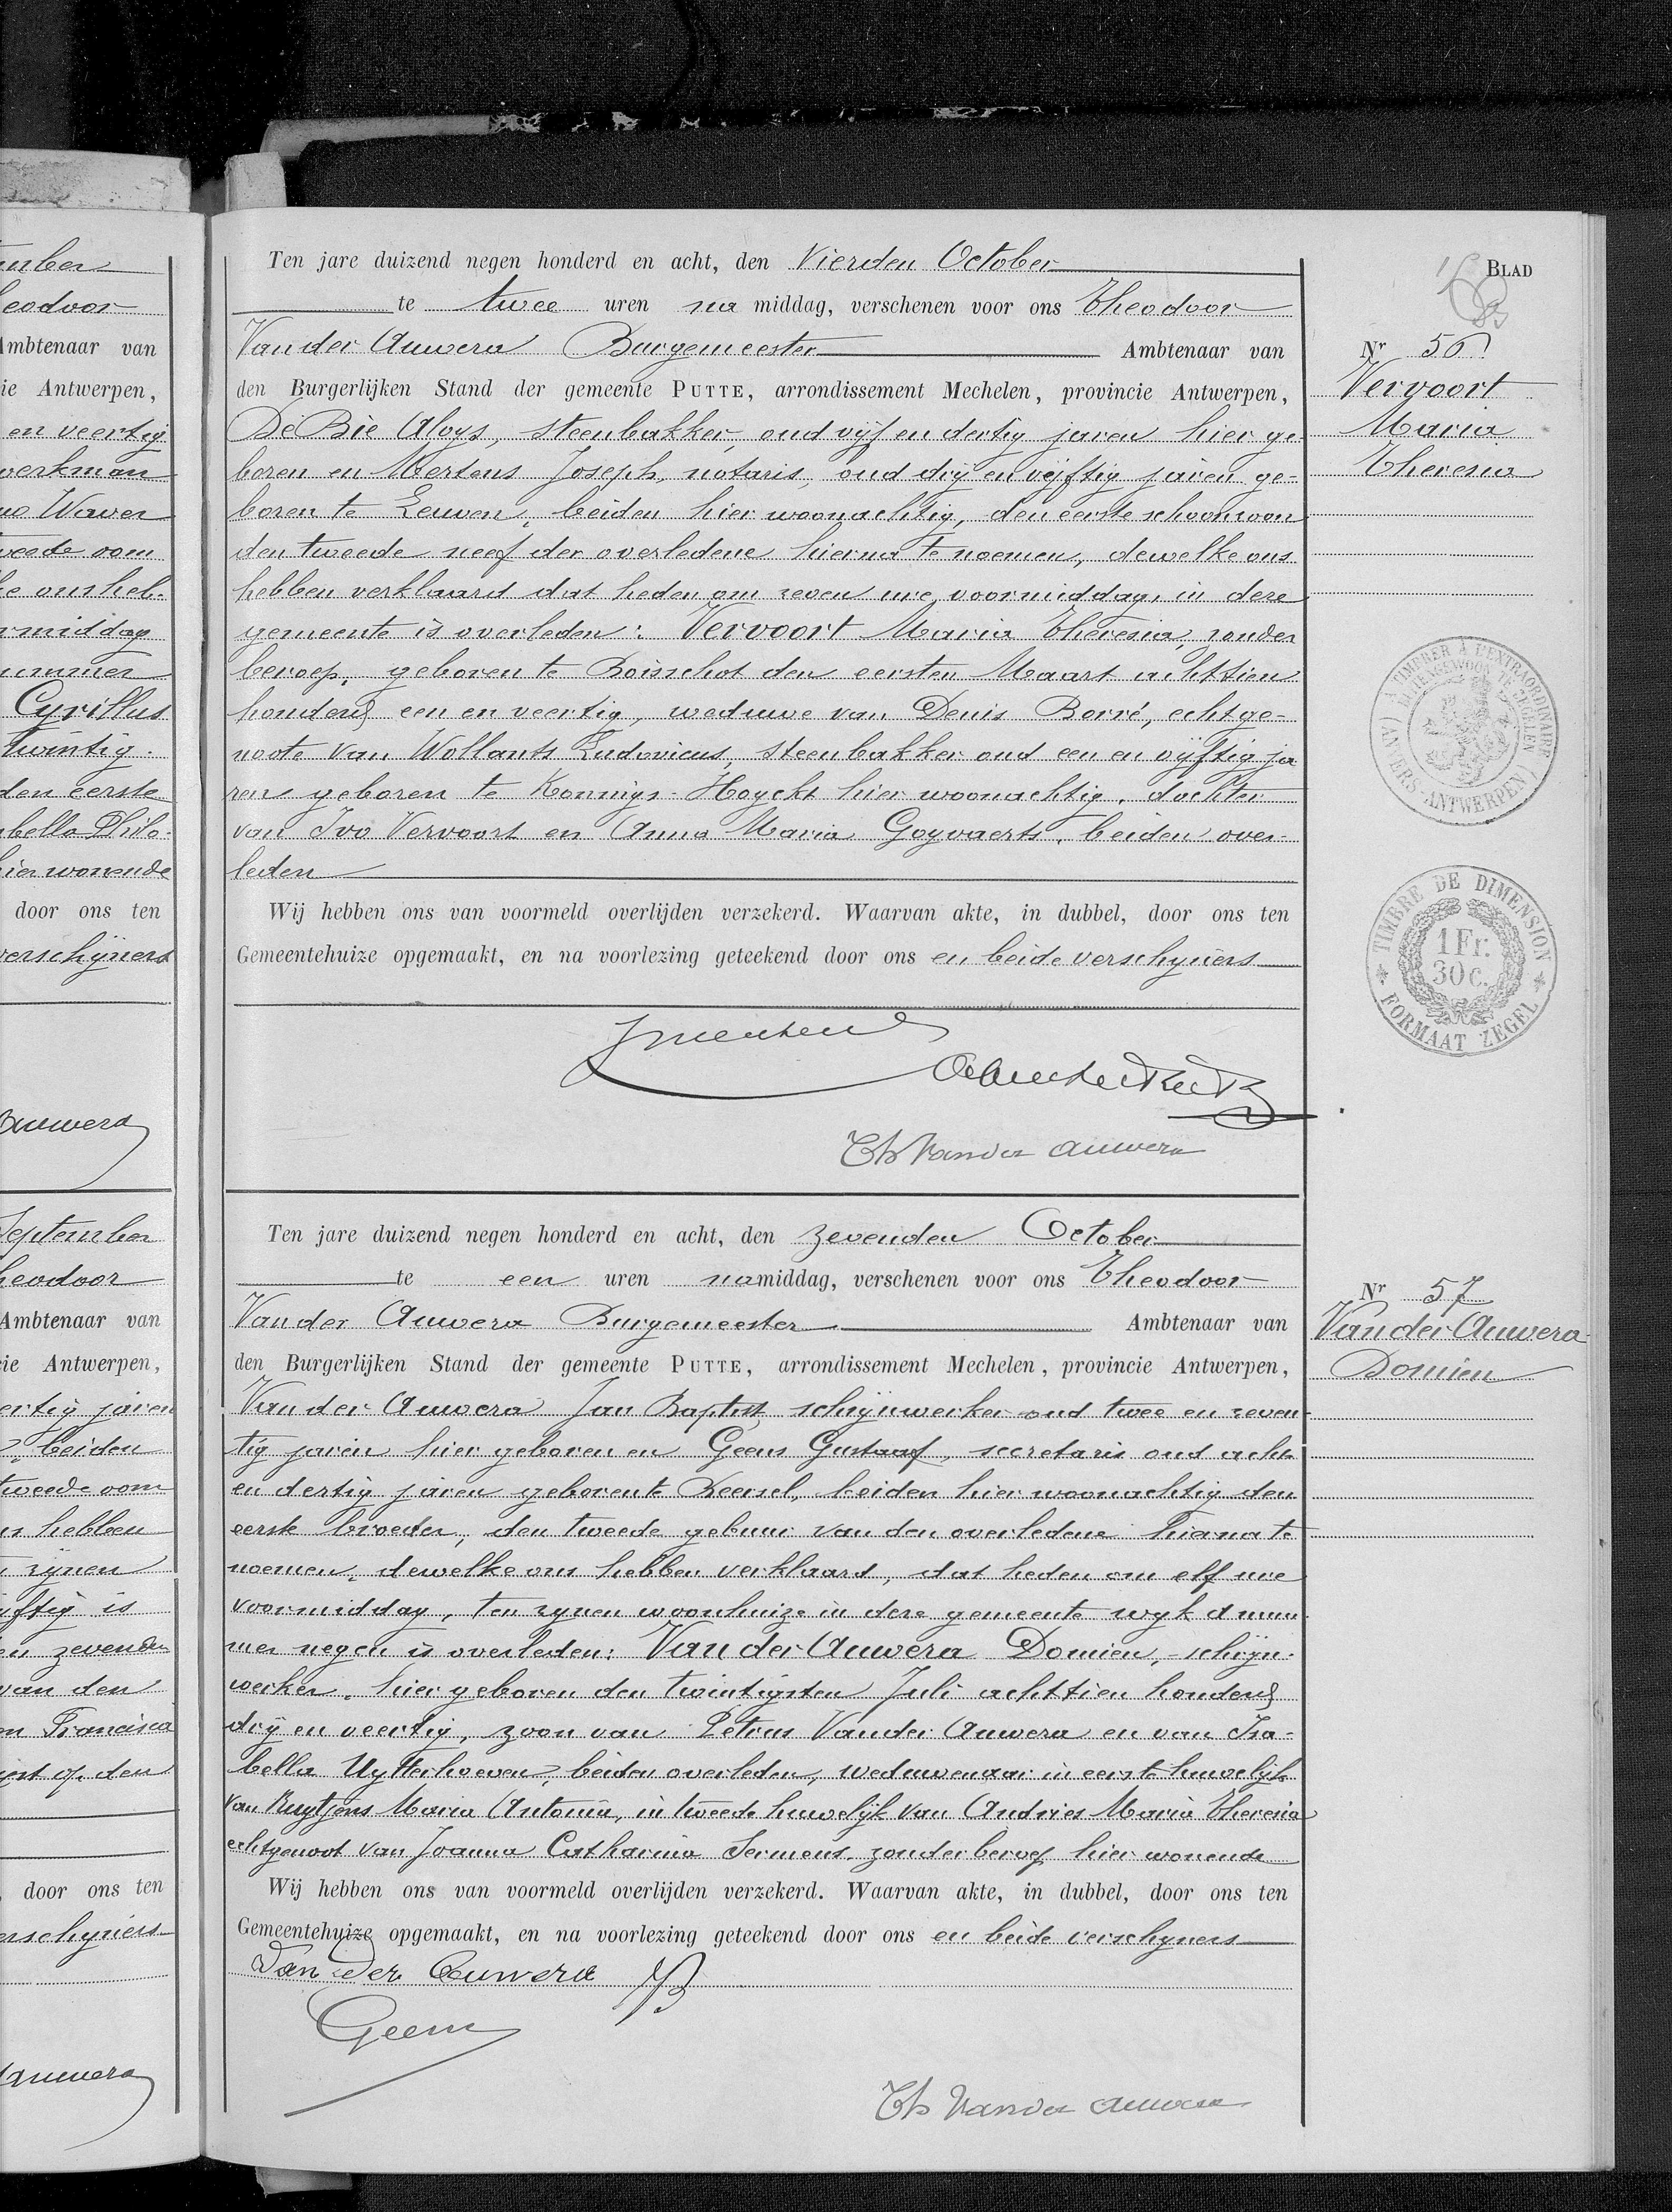 Ten jare duizend negen honderd en acht, den Vierden October
te twee uren na middag, verschenen voor ons Theodoor
Van der Auwera Burgemeester Ambtenaar van
den Burgerlijken Stand der gemeente PUTTE, arrondissement Mechelen, provincie Antwerpen,
De Bie Aloys, steenbakker, oud vijf en dertig jaren hier ge-
boren en Mertens Joseph, notaris, oud drij en vijftig jaren ge-
boren te Leuven, beiden hier woonachtig, den eerste schoonzoon
den tweede neef der overledene hierna te noemen, dewelke ons
hebben verklaard dat heden om zeven ure voormiddag, in deze
gemeente is overleden: Vervoort Maria Theresia, zonder
beroep, geboren te Boisschot den eersten Maart achttien
honderd een en veertig, weduwe van Denis Borré, echtge-
noote van Wollants Ludovicus, steenbakker oud een en vijftig ja
ren geboren te Konings-Hoyckt hier woonachtig, dochter
van Ivo Vervoort en Anna Maria Goyvaerts, beiden over-
leden
Wij hebben ons van voormeld overlijden verzekerd. Waarvan akte, in dubbel, door ons ten
Gemeentehuize opgemaakt, en na voorlezing geteekend door ons en beide verschyners
Th Van der Auwera
BLAD
Nr 56
Vervoort
Maria
Theresia
À TIMBRER À L'EXTRAORDINAIRE
(ANVERS-ANTWERPEN)
TIMBRE DE DIMENSION
1 Fr.
30 c.
FORMAAT ZEGEL
Ten jare duizend negen honderd en acht, den zevenden October
te een uren namiddag, verschenen voor ons Theodoor
Van der Auwera Burgemeester Ambtenaar van
den Burgerlijken Stand der gemeente PUTTE, arrondissement Mechelen, provincie Antwerpen,
Van der Auwera Jan Baptist, schrijnwerker oud twee en zeven-
tig jaren hier geboren en Geens Gustaaf, secretaris oud acht
en dertig jaren geboren te Beersel, beiden hier woonachtig den
eerste broeder, den tweede gebuur van den overledene hierna te
noemen, dewelke ons hebben verklaard, dat heden om elf ure
voormiddag, ten zynen woonhuize in deze gemeente wyk A num
mer negen is overleden: Van der Auwera Domien, schrijn-
werker, hier geboren den twintigsten Juli achttien honderd
drij en veertig, zoon van Petrus Van der Auwera en van Isa-
bella Uytterhoeven, beiden overleden, weduwenaar in eerste huwelijk
van Ruytjens Maria Antonia, in tweede huwelijk van Andries Maria Theresia
echtgenoot van Joanna Catharina Sermens, zonder beroep hier wonende
Wij hebben ons van voormeld overlijden verzekerd. Waarvan akte, in dubbel, door ons ten
Gemeentehuize opgemaakt, en na voorlezing geteekend door ons en beide verschyners
Van Der Auwera JB
Geens
Th Van der Auwera
Nr 57
Van der Auwera
Domien
eodoor
Ambtenaar van
ie Antwerpen,
en veertig
werkman
Waver
weede oom
ke ons heb-
rmiddag
ummer
Cyrillus
twintig
den eerste
bella Philo-
hier wonende
door ons ten
verschijners
Auwera
September
heodoor
Ambtenaar van
cie Antwerpen,
ertig jaren
beiden
tweede oom
s hebben
zijnen
ijftig is
en zevenden
van den
en Francisca
op den
door ons ten
erschyners
Auwera